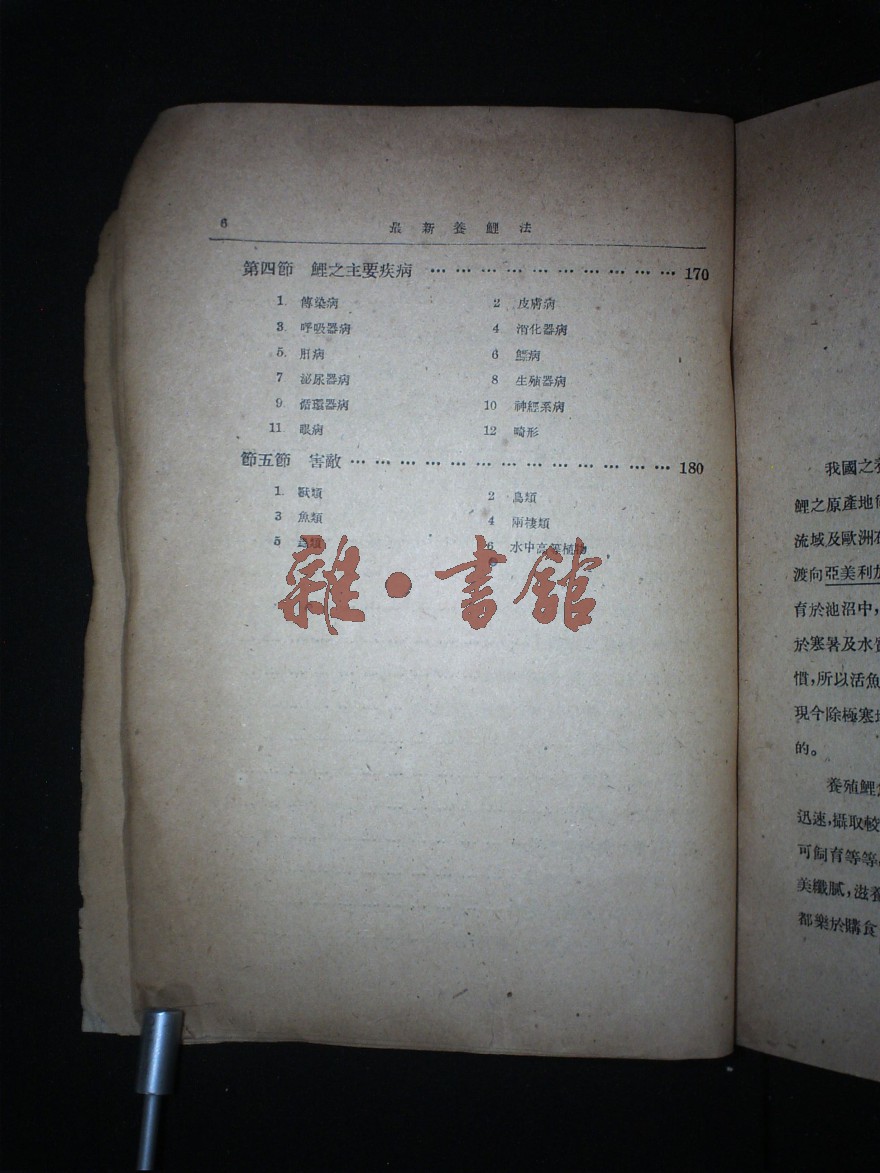 6 最新養鯉法
第四節 鯉之主要疾病 … … … … … … … … … … 170
1. 傳染病 2 皮膚病
3. 呼吸器病 4 消化器病
5. 肝病 6 鰾病
7 泌尿器病 8 生殖器病
9. 循環器病 10 神經系病
11. 眼病 12 畸形
節五節 害敵 … … … … … … … … … … … … … 180
1. 獸類 2 鳥類
3 魚類 4 兩棲類
5 6 水中高等植物
雜·書館
我國之養
鯉之原產地
流域及歐洲
渡向亞美利加
育於池沼中,
於寒暑及水質
慣,所以活魚
現今除極寒地
的。
養殖鯉
迅速,攝取較
可飼育等等,
美纖膩,滋養
都樂於購食